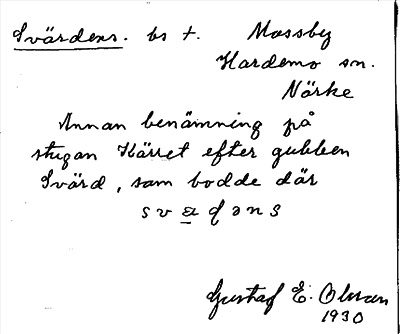 Svärdens. bs t. Mossby
Hardemo sn.
Närke
Annan benämning på
stugan Kärret efter gubben
Svärd, som bodde där
Gustaf E. Olsson
1930